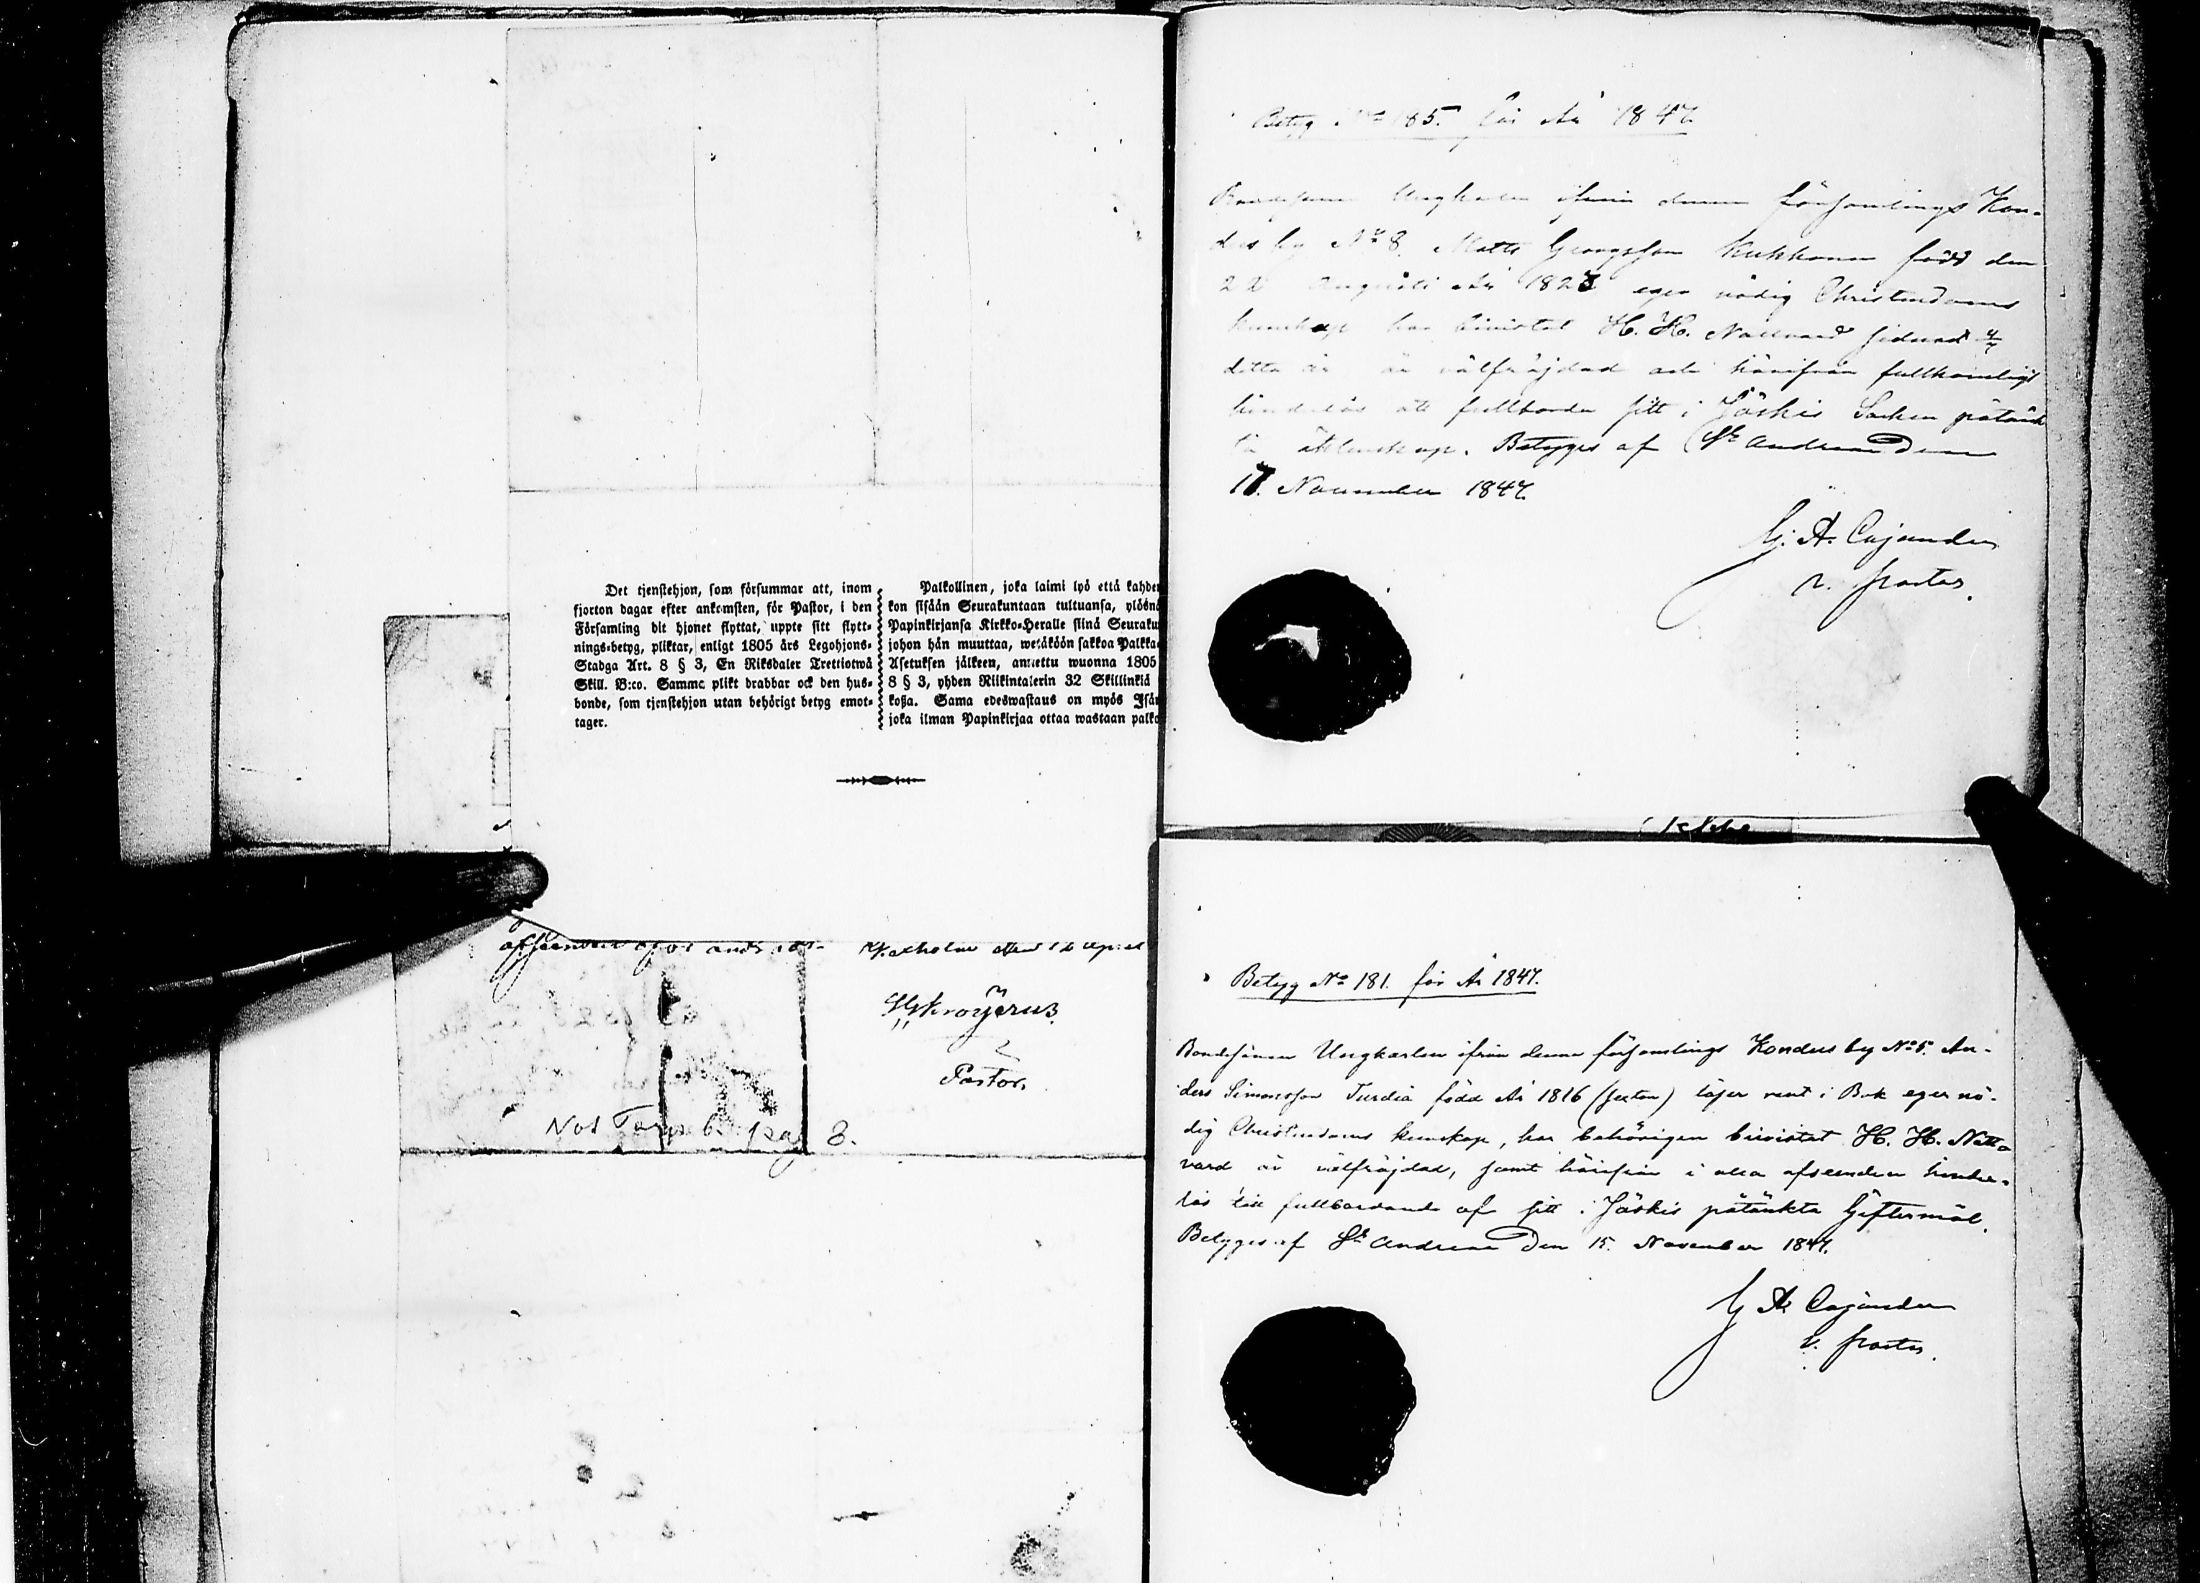 Det tjenstehjon, som försummar att, inom
fjorton dagar efter ankomsten, för Pastor, i den
Församling dit hjonet flyttat, uppte sitt flytt-
nings-betyg, pliktar, enligt 1805 års Legohjons-
Stadga Art. 8 § 3, En Riksdaler Trettiotwå
Skill. B:co. Samma plikt drabbar ock den hus-
bonde, som tjenstehjon utan behörigt betyg emot-
tager.
Palkollinen, joka laimi lyö että kahden
kon sisään Seurakuntaan tultuansa, ylösnä
Papinkirjansa Kirkko-Heralle siinä Seuraku
johon hän muuttaa, wetäköön sakkoa Palkka-
Asetuksen jälkeen, annettu wuonna 1805
8 § 3, yhden Riikintalerin 32 Skillinkiä
koßa. Sama edeswastaus on myös Isän
joka ilman Papinkirjaa ottaa wastaan palko
Pastor.
Not Torp 6. pag 8.
Betyg No 185. för År 1847.
Bondesonen Ungkarlen ifrån denna församlings Kon-
dus by No 8. Matts Georgsson Kukkonen född den
Augusti År 1823 eger nödig Christendoms
kunskap har bivistat H. H. Nattvard sednast 4/7
detta år är välfräjdad och härifrån fullkomligt
hinderlös att fullborda sitt i Jäskis Socken påtänk
ta äktenskap. Betyges af St Andreae Den
17. November 1847.
G. A. Cajander
v. pastor.
Betyg No 181. för År 1847.
Bondesonen Ungkarlen ifrån denna församlings Kondus by No 5. An-
ders Simonsson Turdia född År 1816 (sexton) läser rent i Bok eger nö-
dig Christendoms kunskap, har behörigen bivistat H. H. Natt-
vard är välfräjdad, samt härifrån i alla afseenden hinder-
lös till fullbordande af sitt i Jäskis påtänkta Giftermål.
Betyges af St Andreae Den 15. November 1847.
G A Cajander
v. pastor.